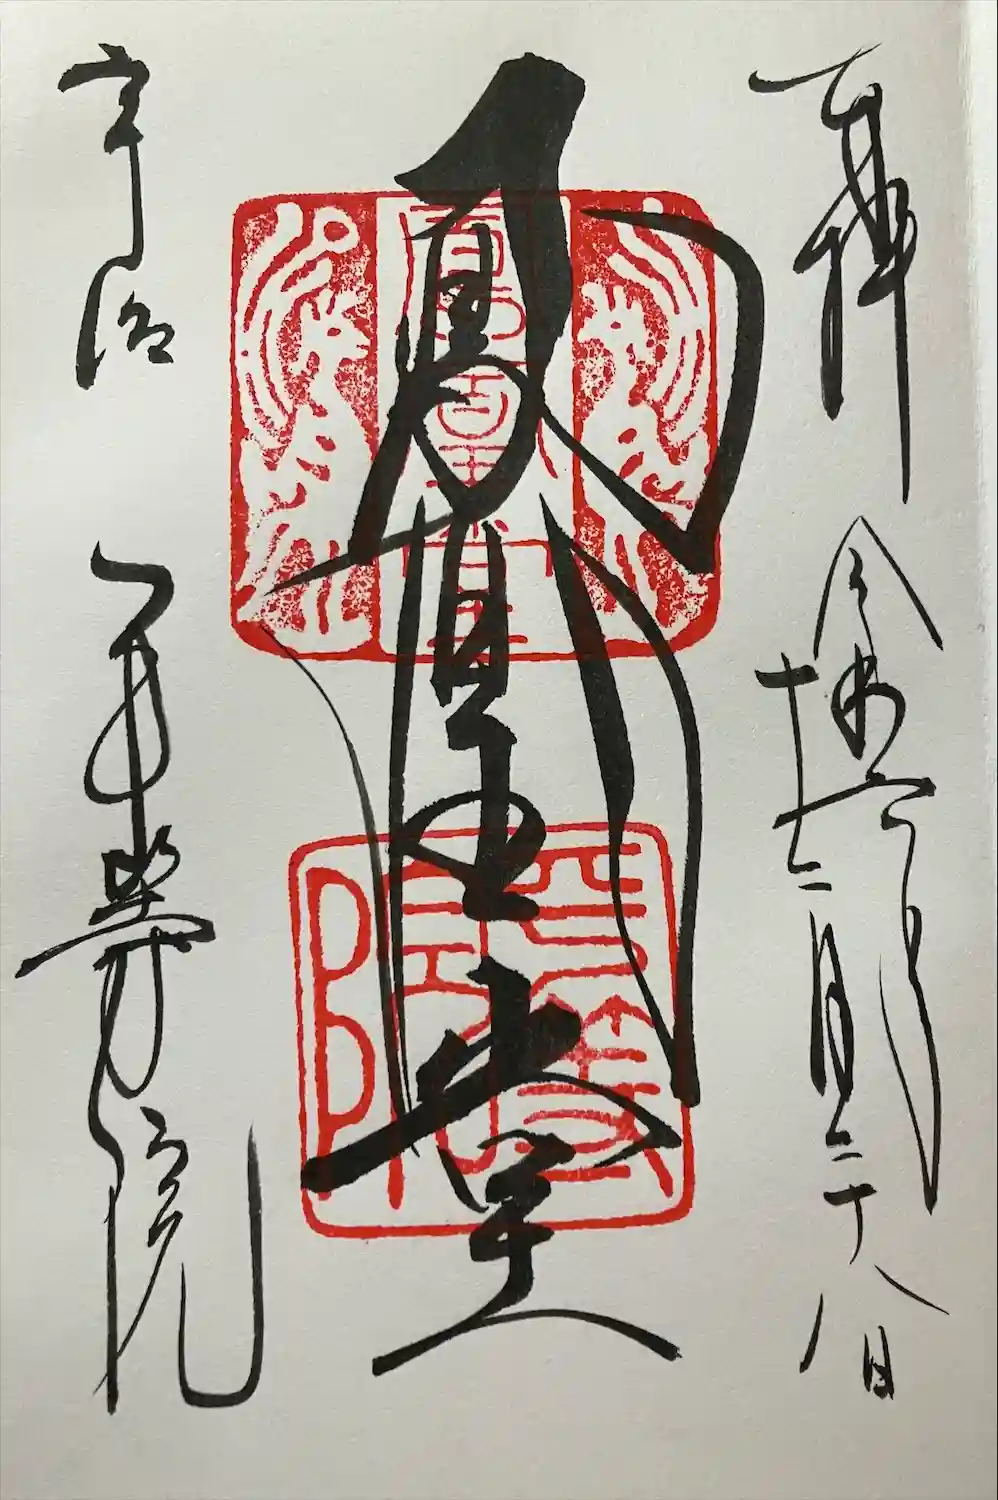 奉拝
令和
十二月二十八日
鳳凰堂
宇治
平等院
平等院